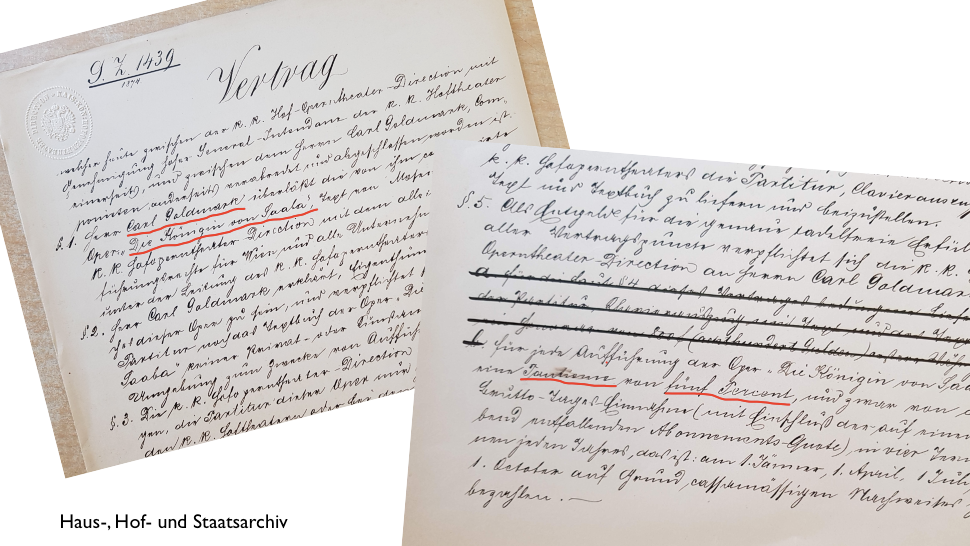 D. Z. 1439
1874
Vertrag
welcher heute zwischen der k. k. Hof-Operntheater-Direction mit
Genehmigung hoher General-Intendanz der k. k. Hoftheater
einerseits, und zwischen dem Herrn Carl Goldmark, Com-
ponisten anderseits verabredet und abgeschlossen worden ist.
§. 1. Herr Carl Goldmark überläßt die von ihm
Oper: "Die Königin von Saaba", Text von Mosen
k. k. Hofoperntheater Direction mit dem allei
führungsrechte für Wien und alle Unternehm
unter der Leitung des k. k. Hofoperntheaters
§. 2. Herr Carl Goldmark erklärt, Eigenthüm
dieser Oper zu sein, und verpflichtet s
Partitur und das Textbuch der Oper "Die
Saaba" keiner Privat- oder
Umgebung zum Zwecke von Aufführ
§. 3. Die k. k. Hofoperntheater-Direction
die Partitur dieser Oper nur
den k. k. Hoftheatern oder bei
k. k. Hofoperntheaters die Partitur, Clavierauszug
Text und Textbuch zu liefern und beizustellen.
§. 5. Als Entgeld für die genaue tadelfreie Erfüll
aller Vertragspuncte verpflichtet sich die k. k.
Operntheater-Direction an Herrn Carl Goldmar
a. für die laut §4 dieses Vertrages
der Partitur, Clavierauszug mit Text und
ein Honorar von
b. für jede Aufführung der Oper "Die Königin von Saa
eine Tantieme von fünf Percent, und zwar von
Brutto-Tages-Einnahme (mit Einschluß der auf einen
bend entfallenden Abonnements-Quote), in vier Term
nen jeden Jahres, das ist: am 1. Jänner, 1. April, 1 Juli
1. October auf Grund cassamässigen Nachweises
bezahlen. —
Haus-, Hof- und Staatsarchiv